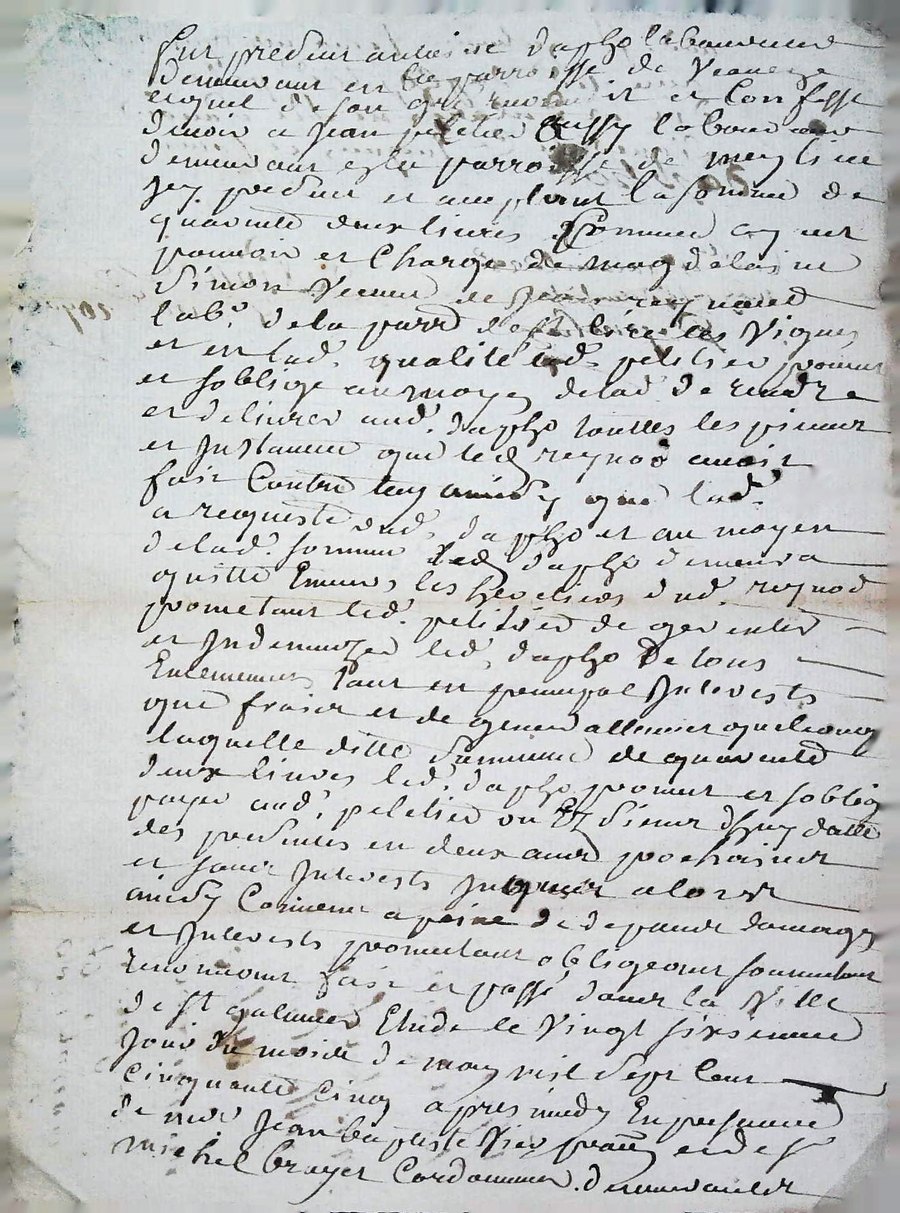 fut present antoine dapzo laboureur
demeurant en la parroisse de Veauche
lequel de son gré reconnoit et Confesse
devoir a Jean peletier aussy laboureur
demeurant en la parroisse de meylieu
Icy present et acceptant la somme de
quarente deux livres comme ayant
pouvoir et Charge de magdelaine
Simon Veuve de reynaud
lab.r de la parr.
et en lad. qualité led. peletier promet
et soblige au moyen delad de rendre
et delivrer aud. dapzo touttes les pieces
et Instances que led reynod avoit
fait Contre luy ainsy que lad.
a requeste dud. dapzo et au moyen
delad. somme led dapzo demeura
quitte Envers les heretiers dud. reynod
prometant led. peletier de garentir
et Indemnizer led. dapzo de tous
Evenements tant en principal Interests
que fraix et de generallement quelconq
laquelle ditte somme de quarente
deux livres led. dapzo promet et soblig
payer aud. peletier ou Es siens d'huy datte
des presentes en deux années prochaines
et sans Interests Jusques alors
ainsy Convenu a peine de depans domages
et Interests promettant obligeant soumettant
renonceant fait et passé dans la Ville
de st galmier Etude le Vingt sixieme
Jour du mois de may mil sept cent
cinquante cinq apres midy En presence
de me Jean baptiste pratt et de sr
michel brayer Cordonnier demeurants